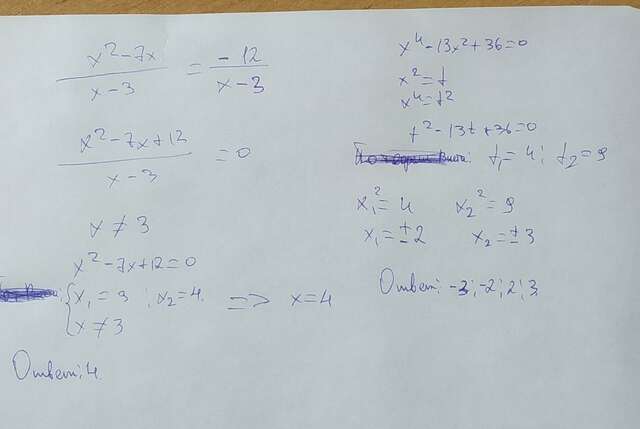 x²-7x / x-3 = -12 / x-3
x²-7x+12 / x-3 = 0
x ≠ 3
x²-7x+12=0
{ x₁ = 3 ; x₂=4. => x=4
x ≠ 3
Ответ: 4.
x⁴-13x²+36=0
x²=t
x⁴=t²
t²-13t+36=0
t₁=4; t₂=9
x₁²=4 x₂²=9
x₁=±2 x₂=±3
Ответ: -3; -2; 2; 3